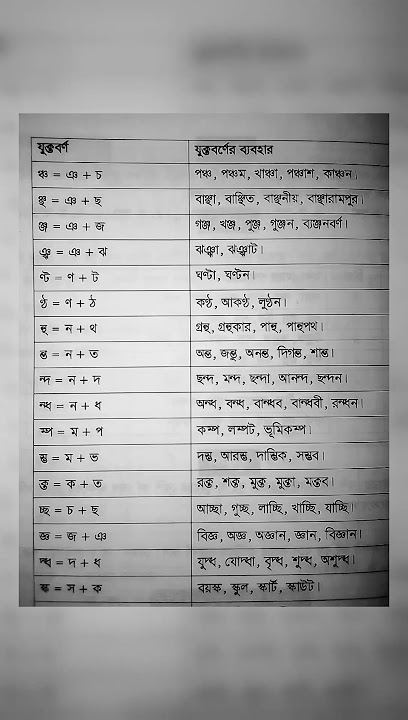 যুক্তবর্ণ যুক্তবর্ণের ব্যবহার
ঞ্চ = ঞ + চ পঞ্চ, পঞ্চম, খাঞ্চা, পঞ্চাশ, কাঞ্চন।
ঞ্ছ = ঞ + ছ বাঞ্ছা, বাঞ্ছিত, বাঞ্ছনীয়, বাঞ্ছারামপুর।
ঞ্জ = ঞ + জ গঞ্জ, খঞ্জ, পুঞ্জ, গুঞ্জন, ব্যঞ্জনবর্ণ।
ঞ্ঝ = ঞ + ঝ ঝঞ্ঝা, ঝঞ্ঝাট।
ণ্ট = ণ + ট ঘণ্টা, ঘণ্টন।
ণ্ঠ = ণ + ঠ কণ্ঠ, আকণ্ঠ, লুণ্ঠন।
ন্থ = ন + থ গ্রন্থ, গ্রন্থকার, পান্থ, পান্থপথ।
ন্ত = ন + ত অন্ত, জন্তু, অনন্ত, দিগন্ত, শান্ত।
ন্দ = ন + দ ছন্দ, মন্দ, ছন্দা, আনন্দ, ছন্দন।
ন্ধ = ন + ধ অন্ধ, বন্ধ, বান্ধব, বান্ধবী, রন্ধন।
ম্প = ম + প কম্প, লম্পট, ভূমিকম্প।
ম্ভ = ম + ভ দম্ভ, আরম্ভ, দাম্ভিক, সম্ভব।
ক্ত = ক + ত রক্ত, শক্ত, মুক্ত, মুক্তা, মক্তব।
চ্ছ = চ + ছ আচ্ছা, গুচ্ছ, লাচ্ছি, খাচ্ছি, যাচ্ছি।
জ্ঞ = জ + ঞ বিজ্ঞ, অজ্ঞ, অজ্ঞান, জ্ঞান, বিজ্ঞান।
দ্ধ = দ + ধ যুদ্ধ, যোদ্ধা, বৃদ্ধ, শুদ্ধ, অশুদ্ধ।
স্ক = স + ক বয়স্ক, স্কুল, স্কার্ট, স্কাউট।